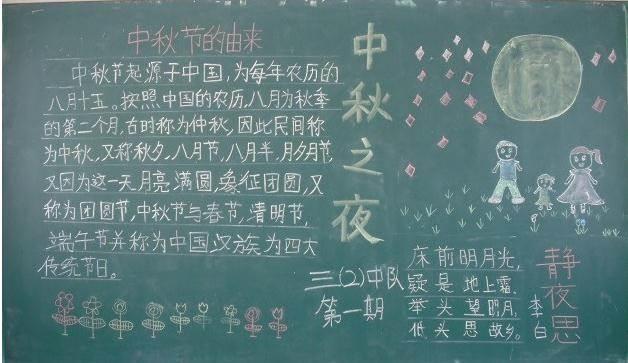 中秋节的由来
中秋节起源于中国,为每年农历的
八月十五。按照中国的农历,八月为秋季
的第二个月,古时称为仲秋,因此民间称
为中秋,又称秋夕,八月节,八月半,月夕月节,
又因为这一天月亮满圆,象征团圆,又
称为团圆节,中秋节与春节,清明节,
端午节并称为中国汉族为四大
传统节日。
中秋之夜
三(2)中队
第一期
静夜思
李白
床前明月光,
疑是地上霜,
举头望明月,
低头思故乡。